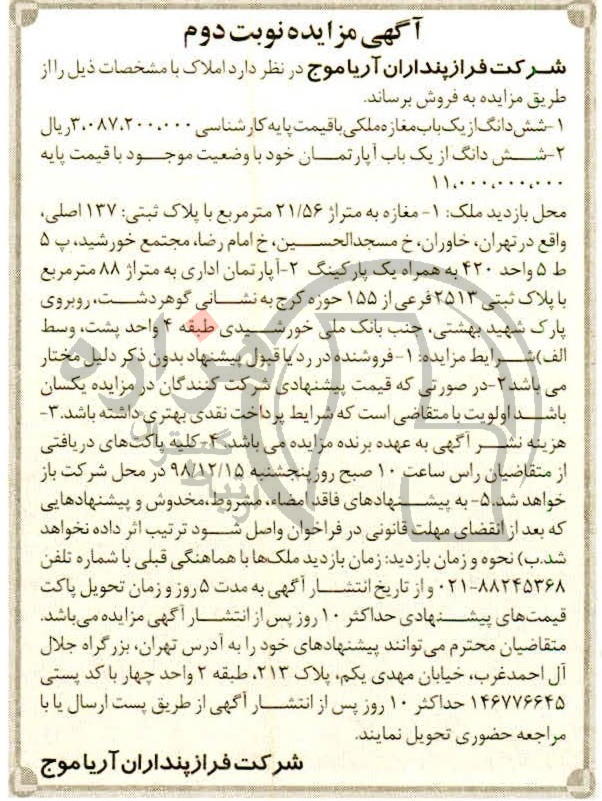 آگهی مزایده نوبت دوم
شرکت فراز پنداران آریا موج در نظر دارد املاک با مشخصات ذیل را از
طریق مزایده به فروش برساند.
۱-شش دانگ از یک باب مغازه ملکی با قیمت پایه کارشناسی ۳،۰۸۷،۲۰۰،۰۰۰ ریال
۲-شش دانگ از یک باب آپارتمان خود با وضعیت موجود با قیمت پایه
۱۱،۰۰۰،۰۰۰،۰۰۰
محل بازدید ملک: ۱- مغازه به متراژ ۲۱/۵۶ مترمربع با پلاک ثبتی: ۱۳۷ اصلی،
واقع در تهران، خاوران، خ مسجدالحسین، خ امام رضا، مجتمع خورشید، پ ۵
ط ۵ واحد ۴۲۰ به همراه یک پارکینگ ۲-آپارتمان اداری به متراژ ۸۸ مترمربع
با پلاک ثبتی ۲۵۱۳ فرعی از ۱۵۵ حوزه کرج به نشانی گوهردشت، روبروی
پارک شهید بهشتی، جنب بانک ملی خورشیدی طبقه ۴ واحد پشت، وسط
الف)شرایط مزایده: ۱-فروشنده در رد یا قبول پیشنهاد بدون ذکر دلیل مختار
می باشد ۲-در صورتی که قیمت پیشنهادی شرکت کنندگان در مزایده یکسان
باشد اولویت با متقاضی است که شرایط پرداخت نقدی بهتری داشته باشد. ۳-
هزینه نشر آگهی به عهده برنده مزایده می باشد. ۴-کلیه پاکت‌های دریافتی
از متقاضیان راس ساعت ۱۰ صبح روز پنجشنبه ۹۸/۱۲/۱۵ در محل شرکت باز
خواهد شد. ۵- به پیشنهادهای فاقد امضاء، مشروط،مخدوش و پیشنهادهایی
که بعد از انقضای مهلت قانونی در فراخوان واصل شود ترتیب اثر داده نخواهد
شد.ب) نحوه و زمان بازدید: زمان بازدید ملک‌ها با هماهنگی قبلی با شماره تلفن
۰۲۱-۸۸۲۴۵۳۶۸ و از تاریخ انتشار آگهی به مدت ۵ روز و زمان تحویل پاکت
قیمت‌های پیشنهادی حداکثر ۱۰ روز پس از انتشار آگهی مزایده می‌باشد.
متقاضیان محترم می‌توانند پیشنهادهای خود را به آدرس تهران، بزرگراه جلال
آل احمدغرب، خیابان مهدی یکم، پلاک ۲۱۳، طبقه ۲ واحد چهار با کد پستی
۱۴۶۷۷۶۶۴۵ حداکثر ۱۰ روز پس از انتشار آگهی از طریق پست ارسال یا با
مراجعه حضوری تحویل نمایند.
شرکت فراز پنداران آریا موج